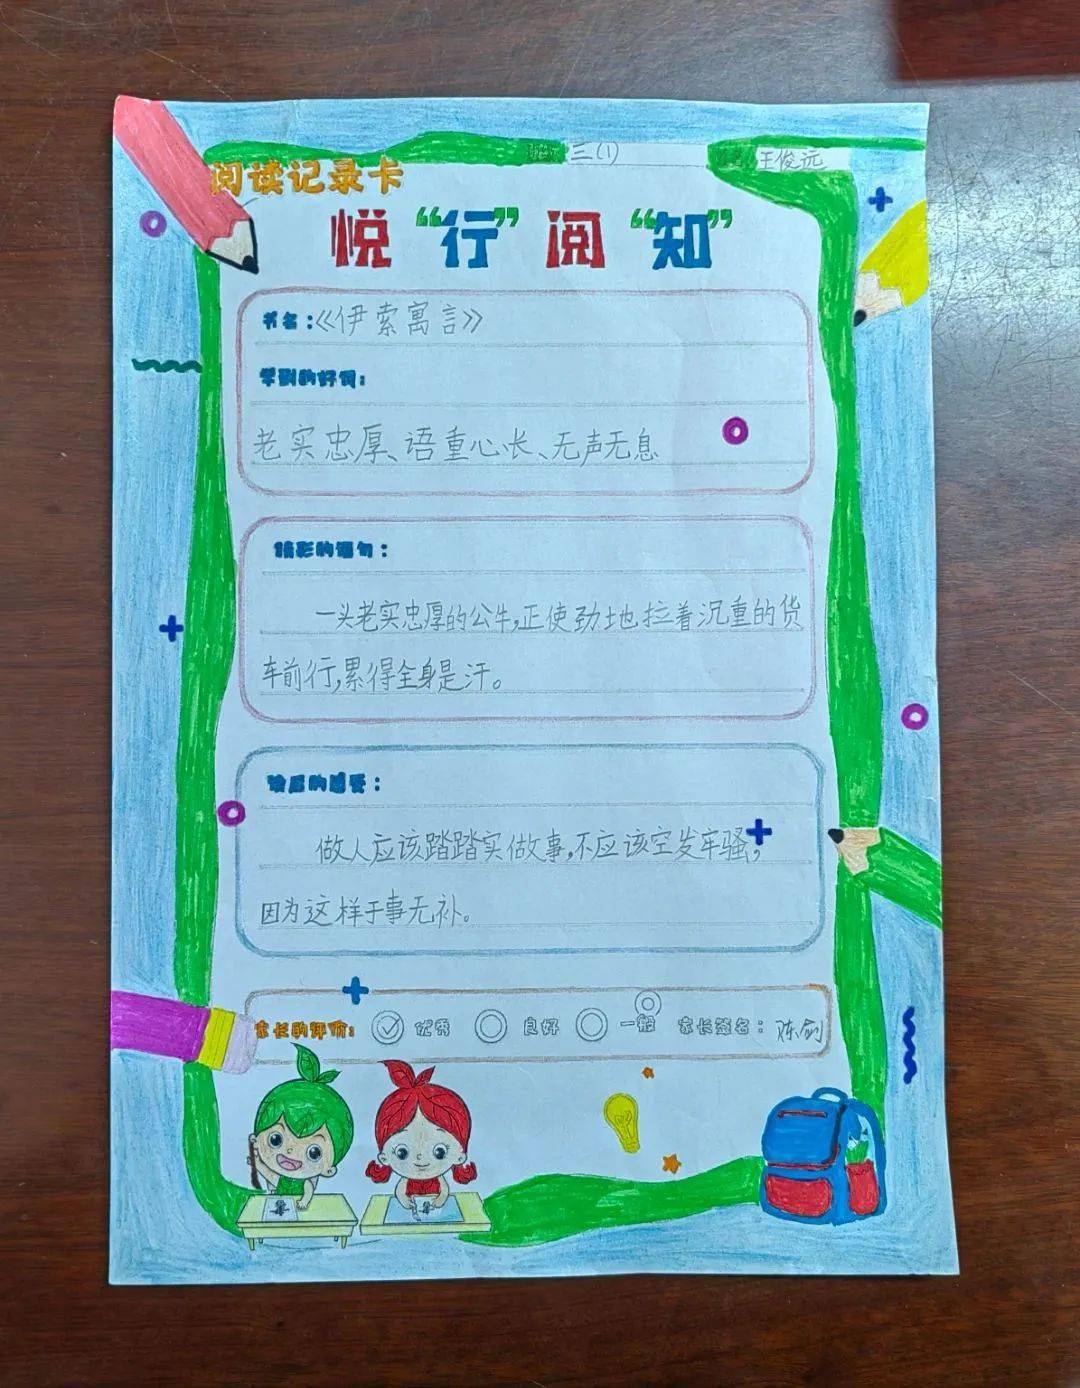 班级 三(1) 姓名 王俊远
阅读记录卡
悦“行”阅“知”
书名：《伊索寓言》
学到的好词：
老实忠厚、语重心长、无声无息
精彩的语句：
一头老实忠厚的公牛,正使劲地拉着沉重的货
车前行,累得全身是汗。
读后的感受：
做人应该踏踏实做事,不应该空发牢骚,
因为这样于事无补。
家长的评价： 优秀 良好 一般 家长签名： 陈剑